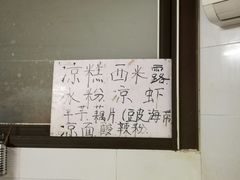 凉糕西米露
冰粉凉虾
干芋藕片(豆皮海带
凉面酸辣粉